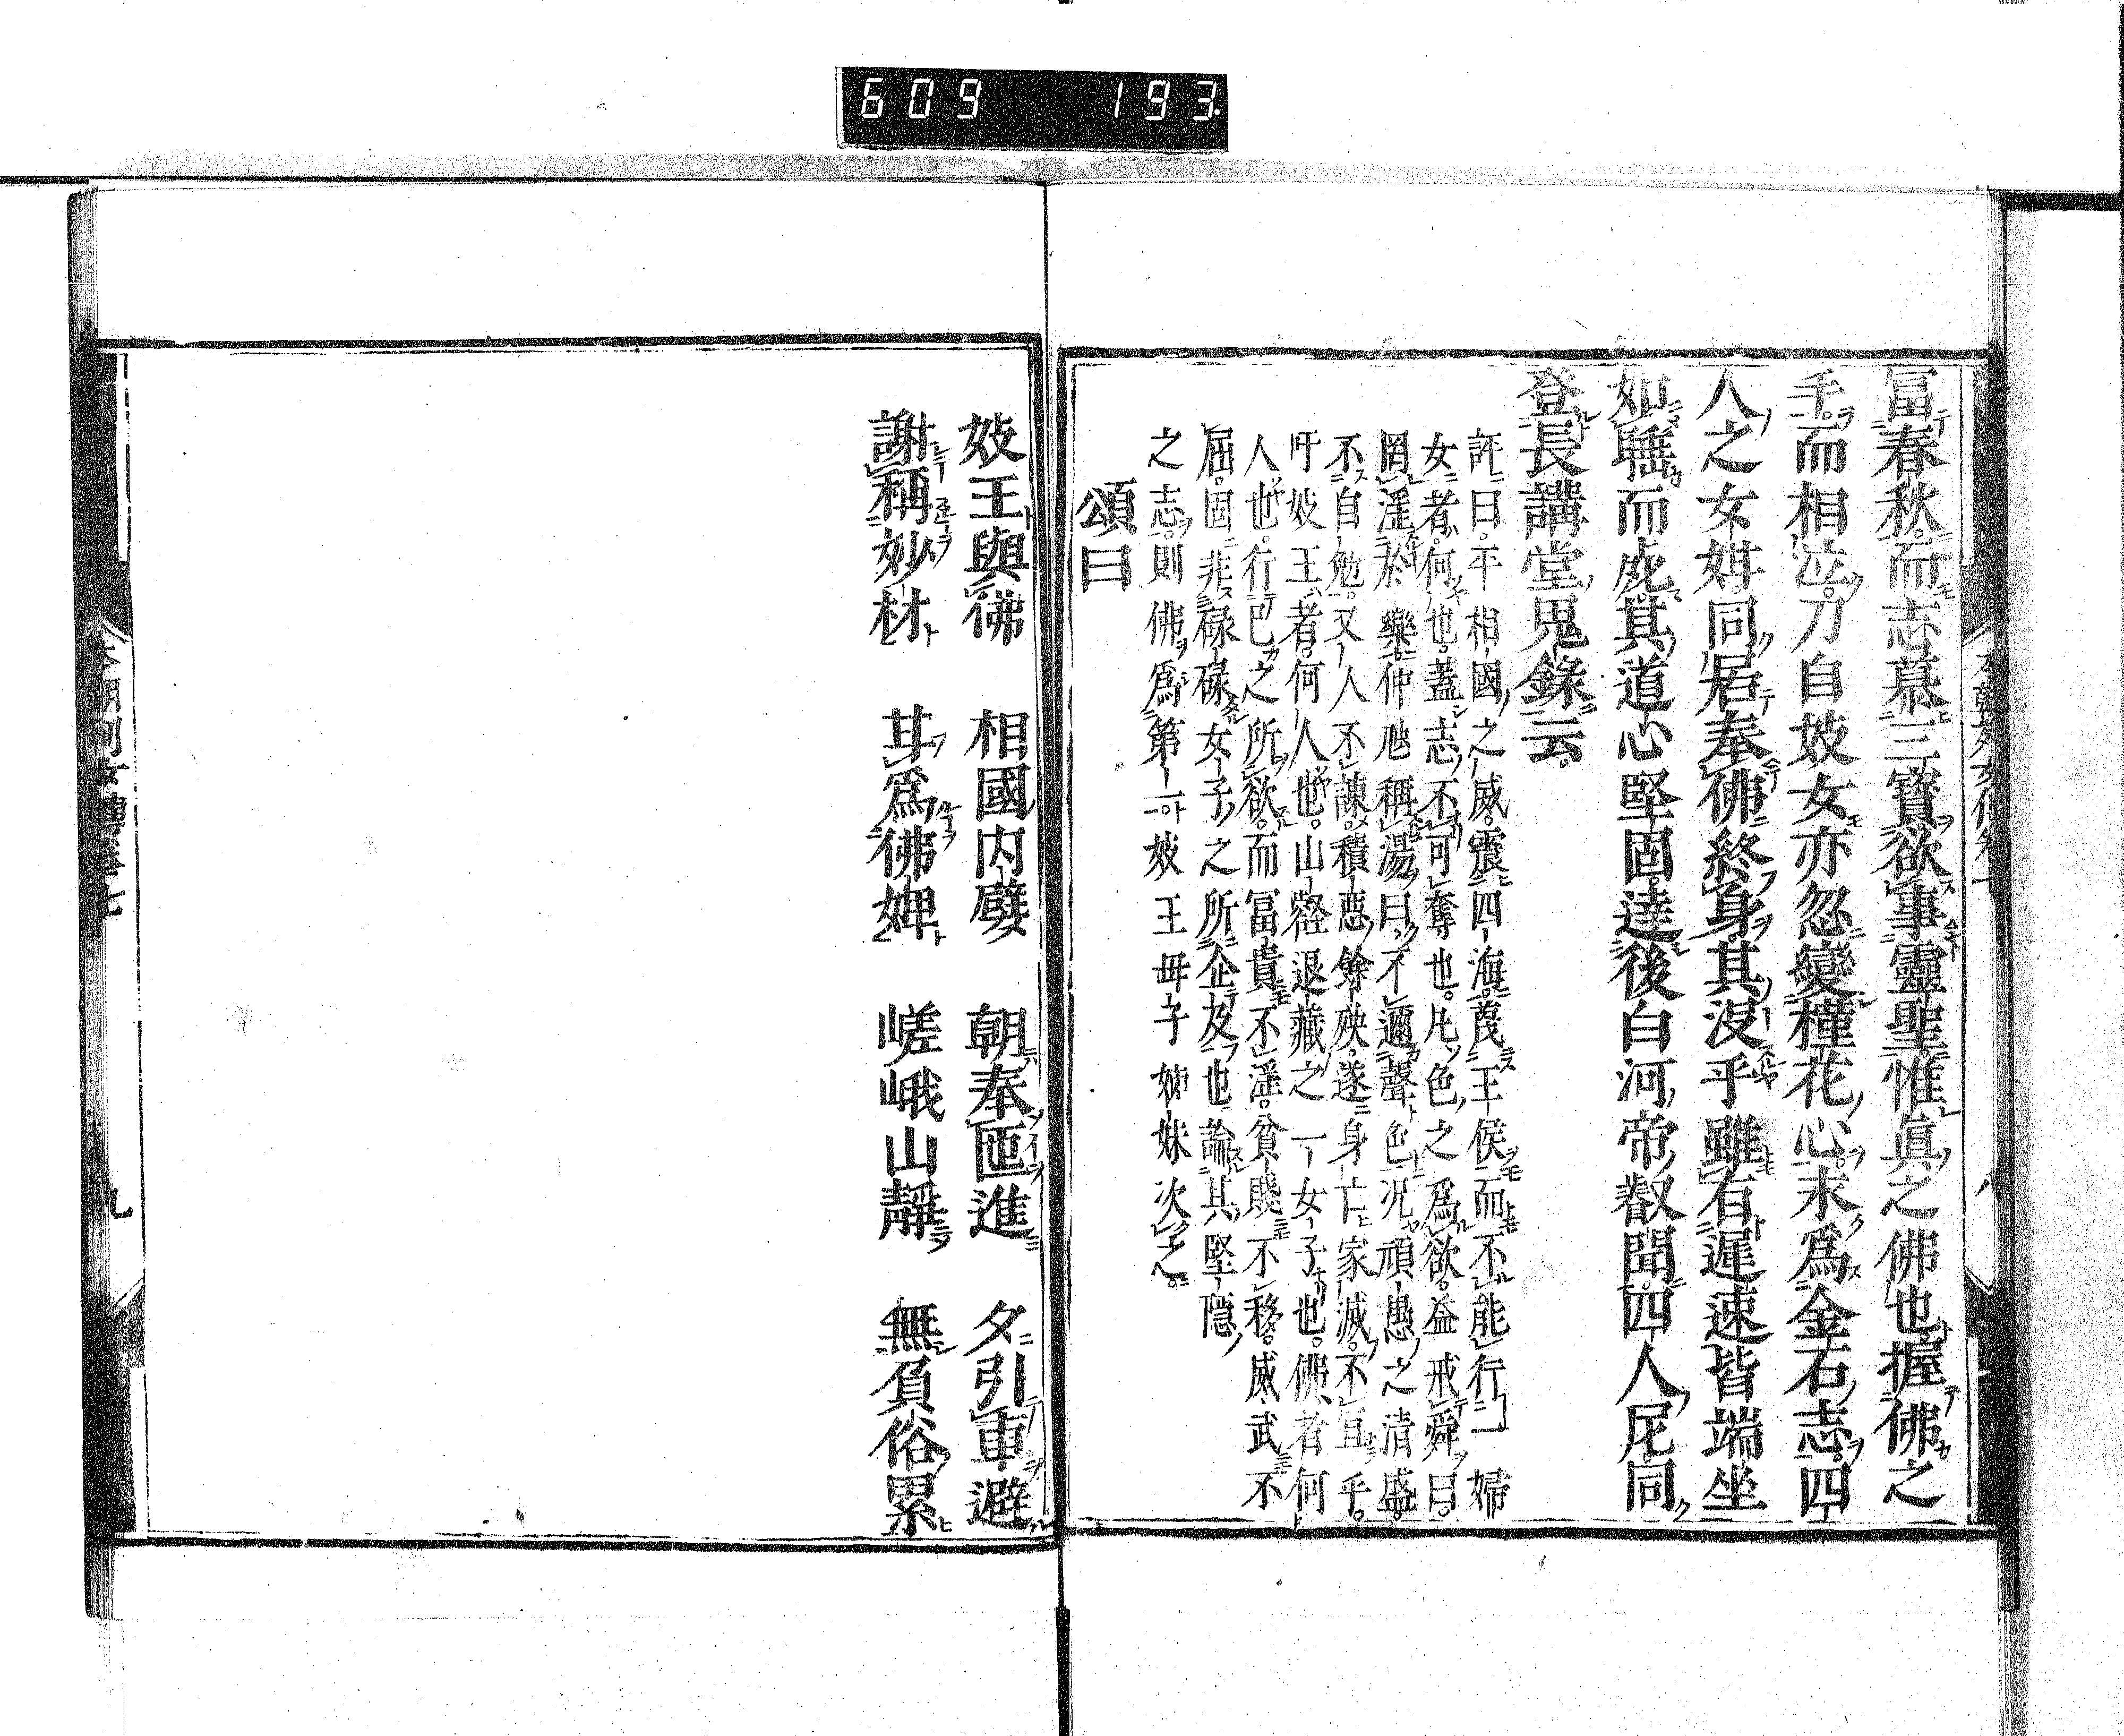 609 193.
富春秋而志慕三寶欲事靈聖惟真之佛也握佛之
手而相泣刀自妓女亦忽變槿花心來為金石志四
人之女娸同居奉佛終身其没乎雖有遲速皆端坐
如睡而死其道心堅固達後白河帝叡聞四人尼同
登長講堂鬼錄云
評曰平相國之威震四海蔑王侯而不能行一婦
女者何也蓋志不可奪也凡色之為欲益戒舜曰
罔淫於樂仲虺稱湯曰不邇聲色况頑愚之清盛
不自勉又人不諫積惡餘殃遂身亡家滅不宜乎
吁妓王者何人也山壑退藏之一女子也佛者何
人也行已之所欲而冨貴不淫貧賤不移威武不
屈固非祿祿女子之所企及也論其堅隱
之志則佛為第一妓王毋子姊妹次之
頌曰
妓王與佛 相國内嬖 朝奉匜進 夕引車避
謝稱妙材 甘為佛婢 嵯峨山靜 無負俗累
本朝列女傳卷七 九